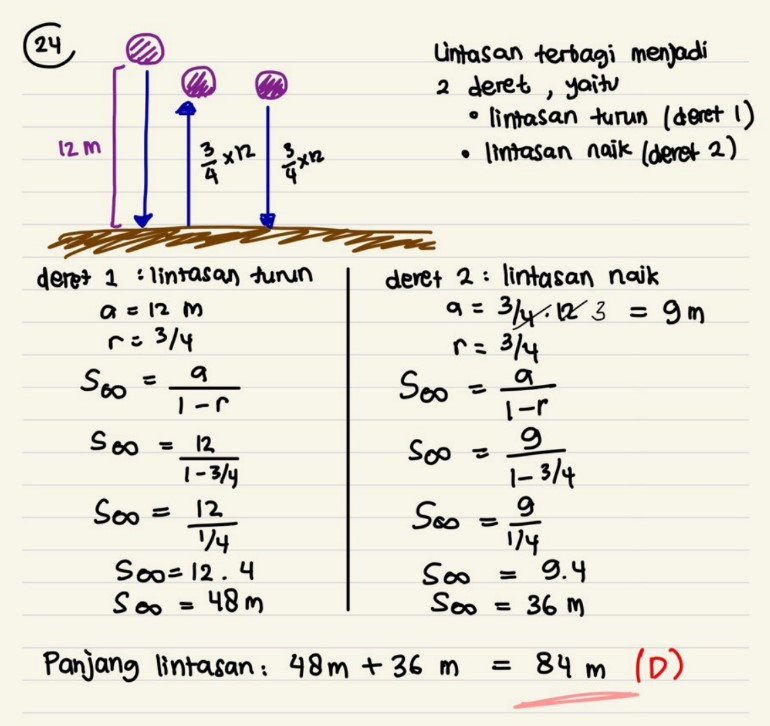 24
Lintasan terbagi menjadi
2 deret, yaitu
• lintasan turun (deret 1)
• lintasan naik (deret 2)
12 m
3/4 x 12
3/4 x 12
deret 1 : lintasan turun
a = 12 m
r = 3/4
S∞ = a / 1 - r
S∞ = 12 / 1 - 3/4
S∞ = 12 / 1/4
S∞ = 12 . 4
S∞ = 48 m
deret 2 : lintasan naik
a = 3/4 . 12 3 = 9 m
r = 3/4
S∞ = a / 1-r
S∞ = 9 / 1 - 3/4
S∞ = 9 / 1/4
S∞ = 9.4
S∞ = 36 m
Panjang lintasan : 48m + 36 m = 84 m (D)